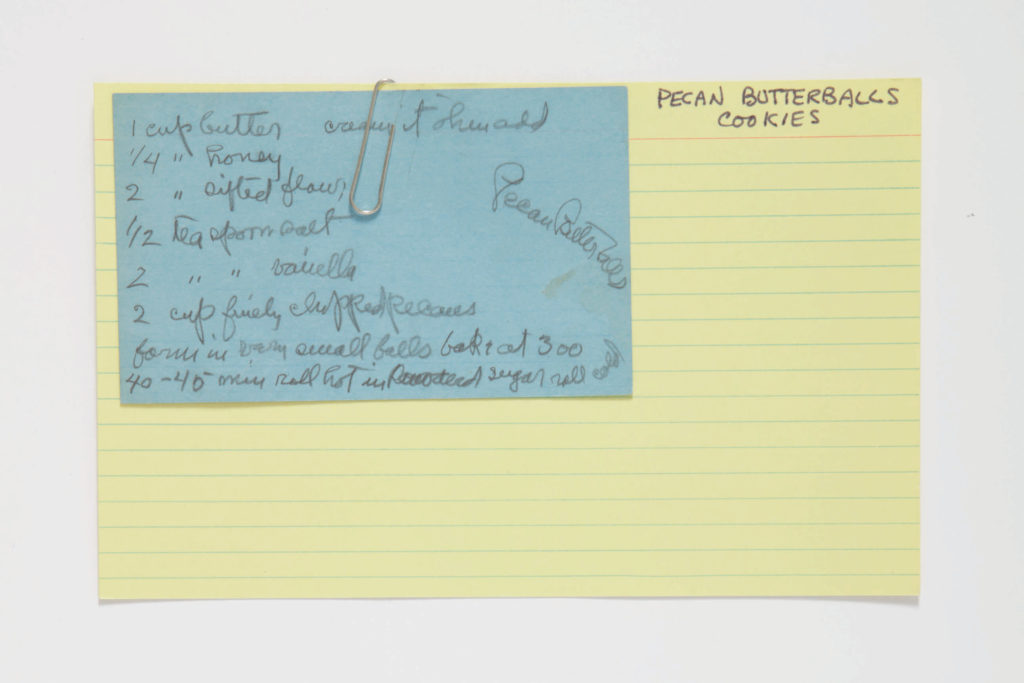 PECAN BUTTERBALLS
COOKIES
1 cup butter cream it then add
1/4 " honey
2 " sifted flour
1/2 teaspoon salt
2 " " vanilla
2 cup finely chopped Pecans
form in very small balls bake at 300
40-45 min roll hot in Powdered sugar roll cold
Pecan Butter balls